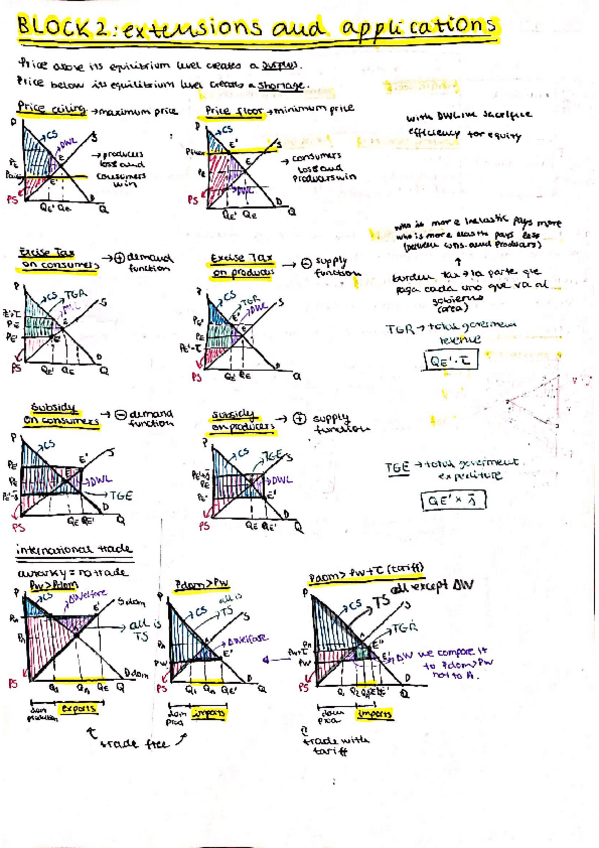 BLOCK 2: extensions and applications
Price above its equilibrium level creates a surplus.
Price below its equilibrium level creates a shortage.
Price ceiling → maximum price
Price floor → minimum price
with DWL we sacrifice
efficiency for equity
P
CS
S
DWL
PE
E
PS
QE' QE
D
Q
→ producers
loss and
consumers
win
P
CS
E'
S
PE
E
DWL
PS
QE' QE
D
Q
→ consumers
loss and
producers win
who is more inelastic pays more
who is more elastic pays less
(between cons. and producers)
Excise Tax
on consumers
→ + demand
function
Excise Tax
on producers
→ - supply
function
burden tax → la parte que
paga cada uno que va al
gobierno
(area)
P
CS
TGR
S
PE
PE'
E
PS
QE' QE
D
Q
P
CS
TGR
DWL
S
PE'
PE
PE'-τ
E
PS
QE' QE
D
Q
TGR → total goverment
revenue
QE' · τ
Subsidy
on consumers
→ - demand
function
Subsidy
on producers
→ + supply
function
P
CS
S
E'
PE'
PE
E
DWL
TGE
PS
QE QE'
D
Q
P
CS
TGE
S
PE
DWL
E'
PS
QE QE'
D
Q
TGE → total goverment
expenditure
QE' × s
international trade
autarky = no trade
Pw > Pdom
Pdom > Pw
Pdom > Pw + τ (tariff)
all except DW
P
CS
ΔWelfare
E'
S dom
all is
TS
PA
A
D dom
PS
QA
QE
Q
dom
production
exports
P
CS
all is
TS
S
PA
A
ΔWelfare
PW
E'
PS
Q1 QA QE'
D
Q
dom
prod
imports
P
CS
TS
S
TGR
PA
PW+τ
PW
E''
E'
DW we compare it
to Pdom > Pw
not to A.
PS
D
Q
dom
prod
imports
trade free
trade with
tariff